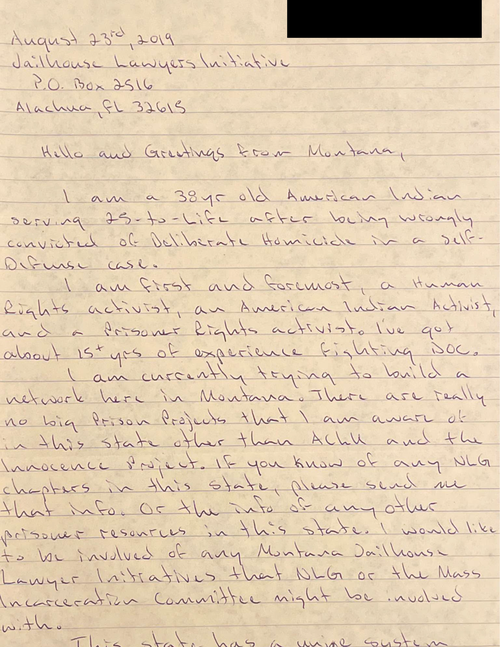 August 23rd, 2019
Jailhouse Lawyers Initiative
P.O. Box 2516
Alachua, FL 32615
Hello and Greetings from Montana,
I am a 38yr old American Indian
serving 25-to-Life after being wrongly
convicted of Deliberate Homicide in a self-
Defense case.
I am first and foremost, a Human
Rights activist, an American Indian Activist,
and a Prisoner Rights activist. I've got
about 15+ yrs of experience fighting DOC.
I am currently trying to build a
network here in Montana. There are really
no big Prison Projects that I am aware of
in this state other than and the
Innocence Project. If you know of any NLG
chapters in this state, please send me
that info. Or the info of any other
prisoner resources in this state. I would like
to be involved of any Montana Jailhouse
Lawyer Initiatives that NLG or the Mass
Incarceration Committee might be involved
with.
This state has a system